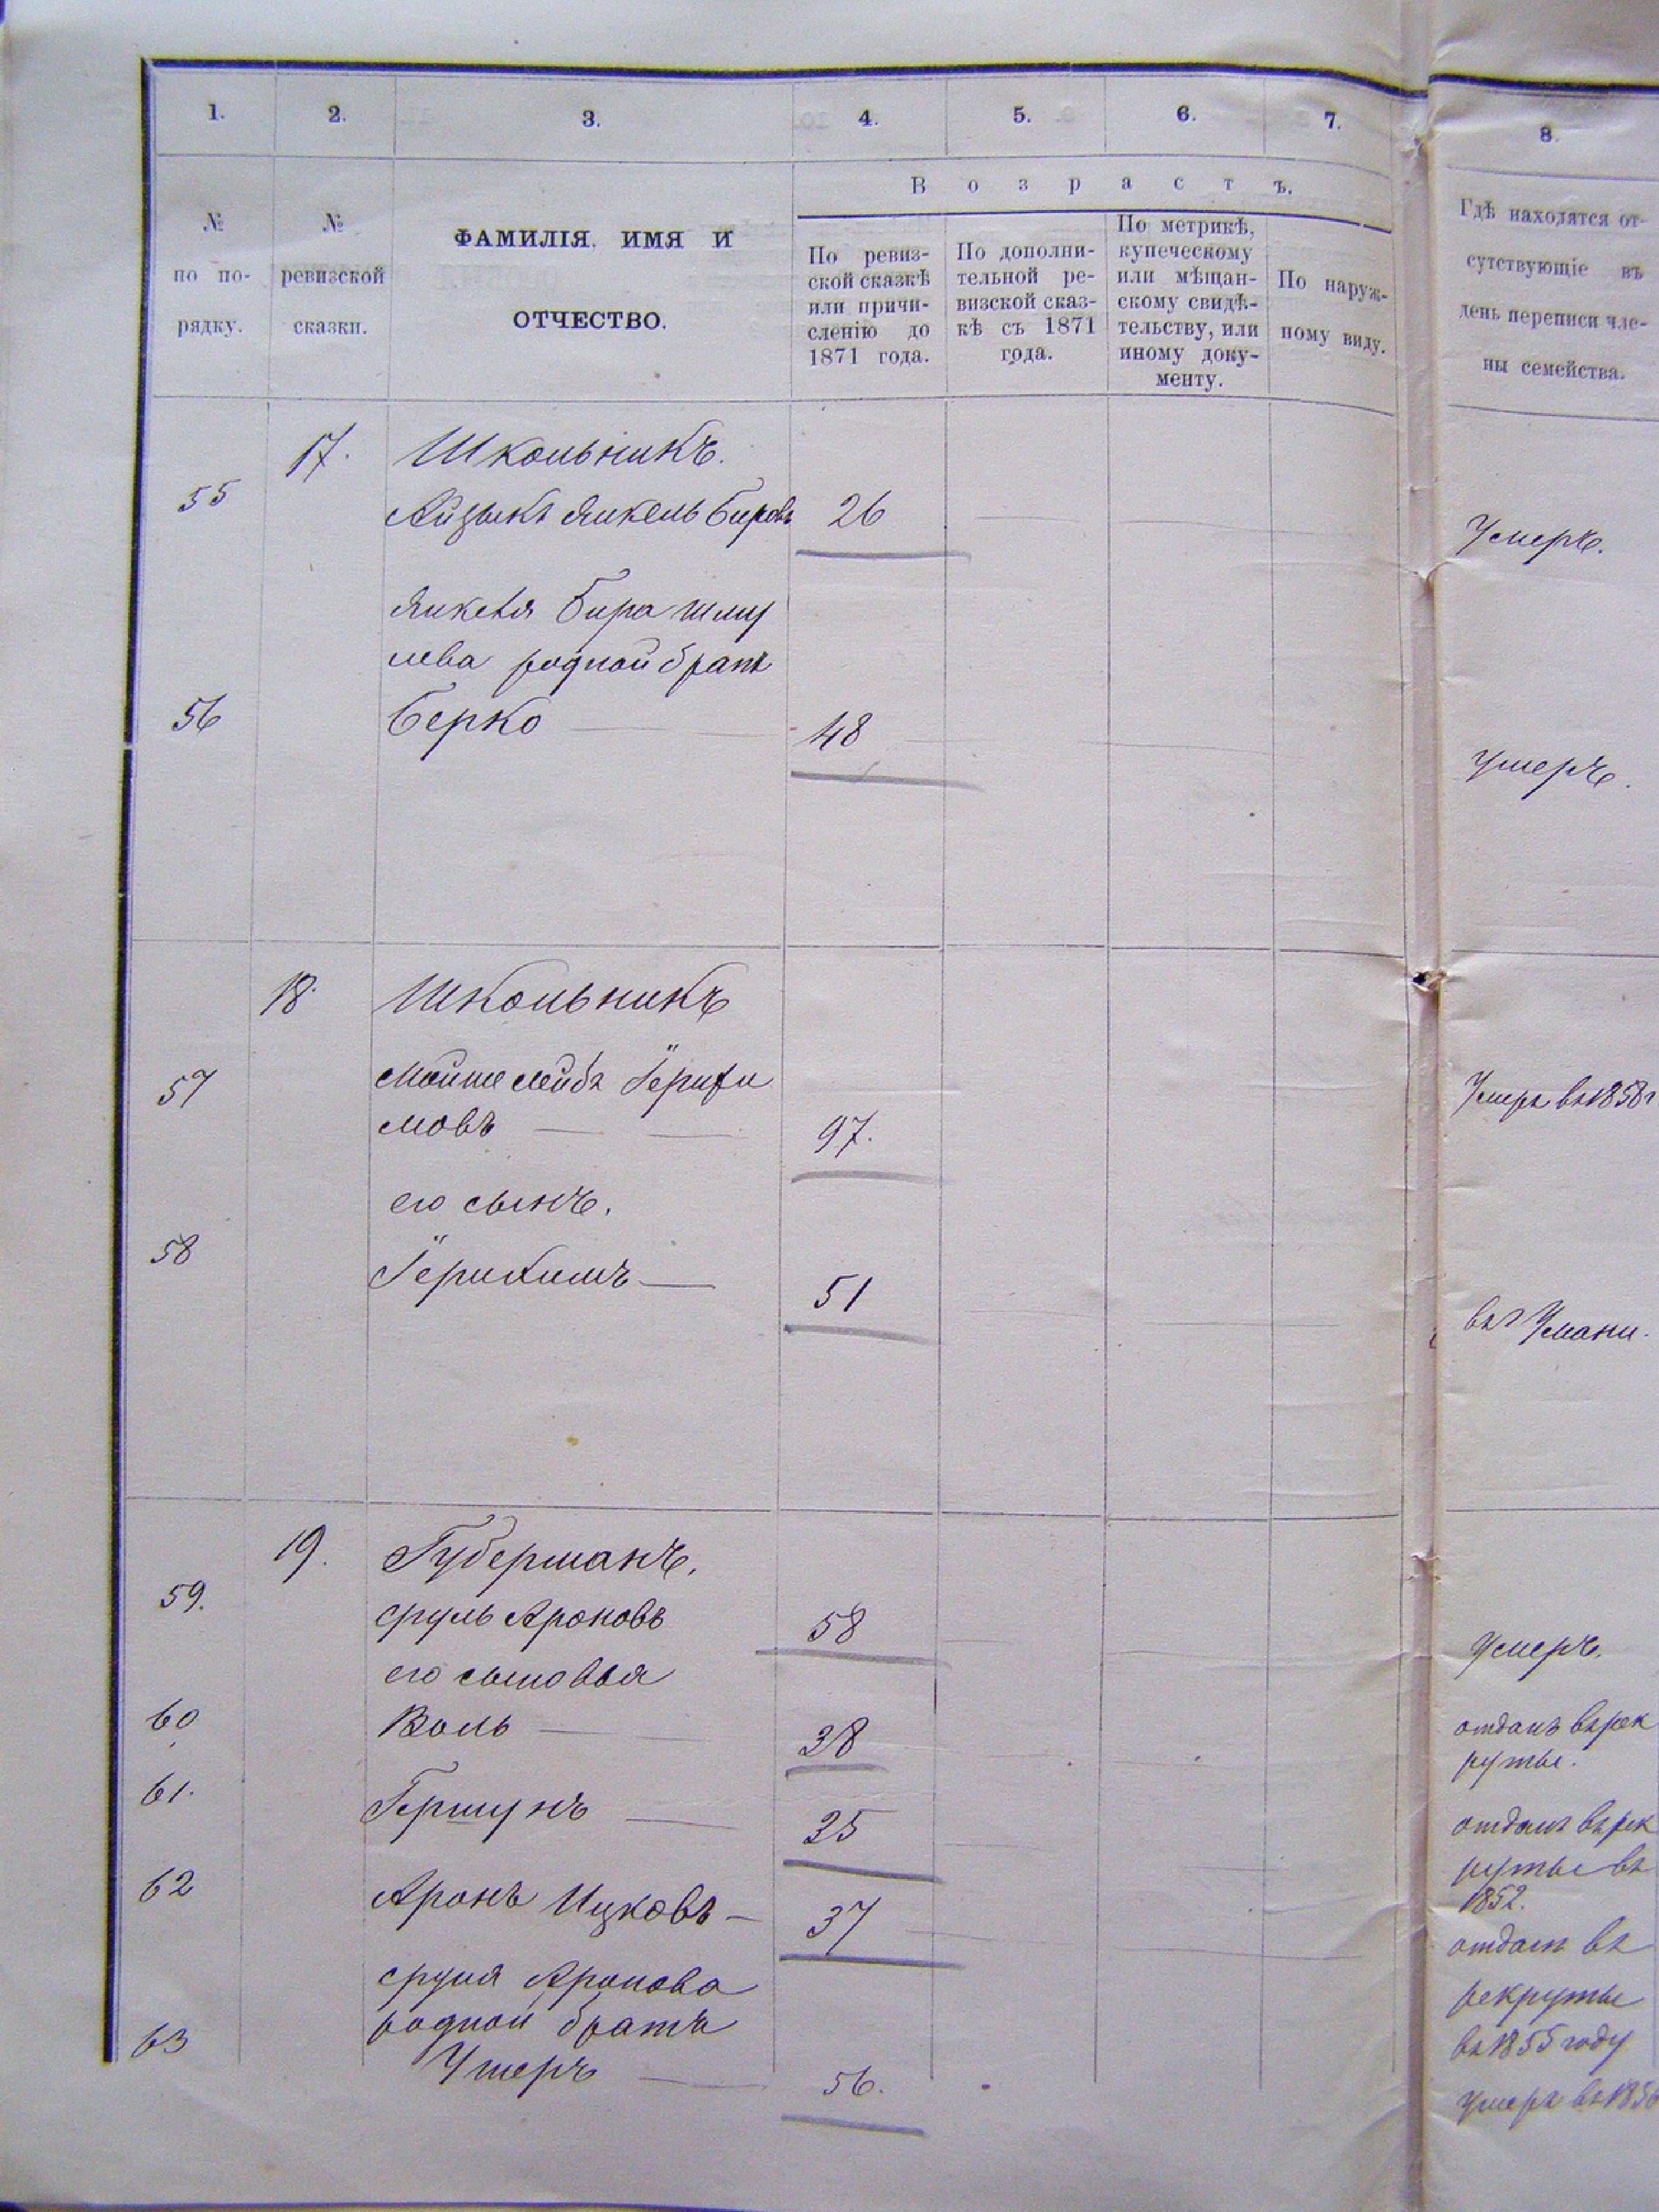 1. 2. 3. 4. 5. 6. 7. 8.
№ по по- рядку.
№ ревизской сказки.
ФАМИЛІЯ, ИМЯ И
ОТЧЕСТВО.
Возрастъ.
По ревиз-
ской сказкѣ
или причи-
сленію до
1871 года.
По дополни-
тельной ре-
визской сказ-
кѣ съ 1871
года.
По метрикѣ,
купеческому
или мѣщан-
скому свидѣ-
тельству, или
иному доку-
менту.
По наруж-
ному виду.
Гдѣ находятся от-
сутствующіе въ
день переписи чле-
ны семейства.
17. Школьникъ.
55 Айзыкъ Янкель Бировъ 26 Умеръ.
Янкеля Бира Шму
лева родной братъ
56 Берко 48 Умеръ.
18. Школьникъ
57 Мойше Лейба
мовъ 97. Умеръ въ 1858 г
его сынъ.
58 51 въ г Умани.
19. Губерманъ.
59. Сруль Ароновъ 58 Умеръ.
его сыновья
60 Воль 38 отданъ въ рек
руты.
61. Гершунъ 25 отданъ въ рек
руты въ
1852.
62 Аронъ Ицковъ 37 отданъ въ
рекруты
въ 1855 году
Сруля Аронова
родной братъ
63 Ушеръ 56. Умеръ въ 1856